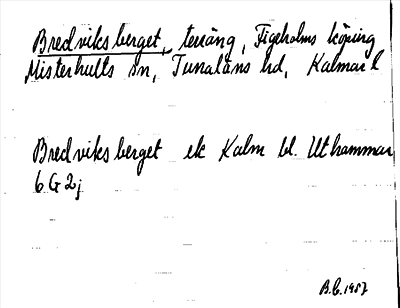 Bredviksberget, terräng, Figeholms köping
Misterhults sn, Tunaläns hd, Kalmar l
Bredviksberget ek Kalm bl. Uthammar
6 G 2j
B.C. 1957